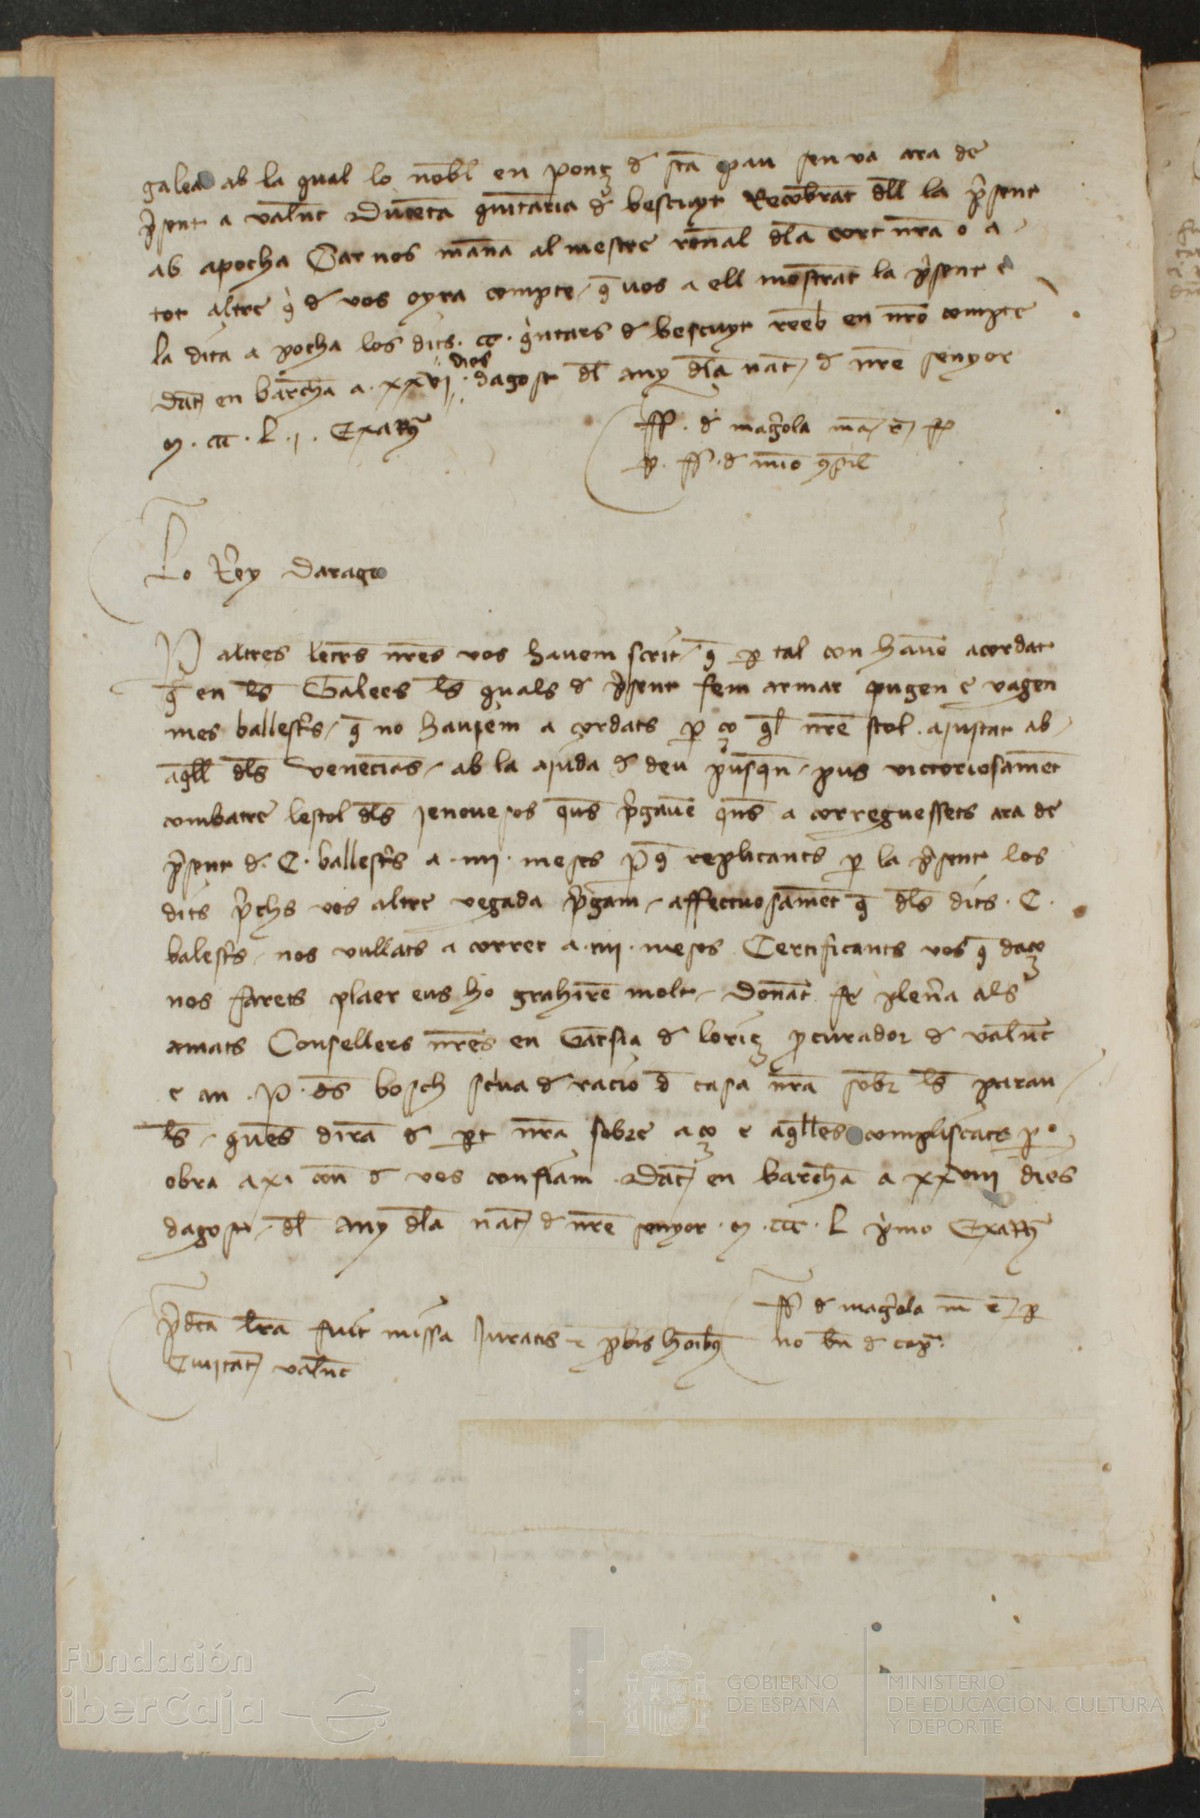 galea ab la qual lo nobl en ponç d sta pau sen va ara de
psent a valnc Duceta quitaria d bescuyt Recobrat dll la psent
ab apocha Car nos mana al mestre ronal dla cort nra o a
tot altre q d vos oyra compte q vos a ell mostrat la psent e
la dita a pocha los dits · cc · quitars d bescuyt reeb en nro compte
Dat en barchna a · xxvi · dies dagost dl any dla nat d nre senyor
m · ccc · L · j · Exa
ff · d magola
p · ff · d
Lo Rey Darago
P altres letrs nres vos havem scrit q p tal con havem acordat
q en ls Galees ls quals d psent fem armar pugen e vagen
mes ballestrs q no haviem a cordats p ço ql nre stol aiustat ab
aqll dls venecians ab la aiuda d deu pusqn pus victoriosamet
combatre lestol dls jenovesos quns pgavem quns a correguessets ara de
psent d · C · ballestrs a · iiii · meses Pq replicants p la psent los
dits pchs vos altre vegada pgam affectuosamet q dls dits · C ·
balestrs nos vullats a correr a · iiii · meses Certificants vos q daço
nos farets plaer eus ho grahirem molt Donat fe plena als
amats Consellers nres en Garsia d loriç pcurador d valnc
e an · P · ds bosch scriva d racio d casa nra sobr ls parau
ls ques dira d part nra sobre aço e aqlles compliscats p
obra axi con d vos confiam Dat en barchna a xxviii dies
dagost dl any dla nat d nre senyor · m · ccc · L pmo Exa
pdca lra fuit missa Juratis e pbis hoibus
Civitat valnc
ff d magola
no d cap
Fundación
iberCaja
GOBIERNO
DE ESPAÑA
MINISTERIO
DE EDUCACIÓN, CULTURA
Y DEPORTE